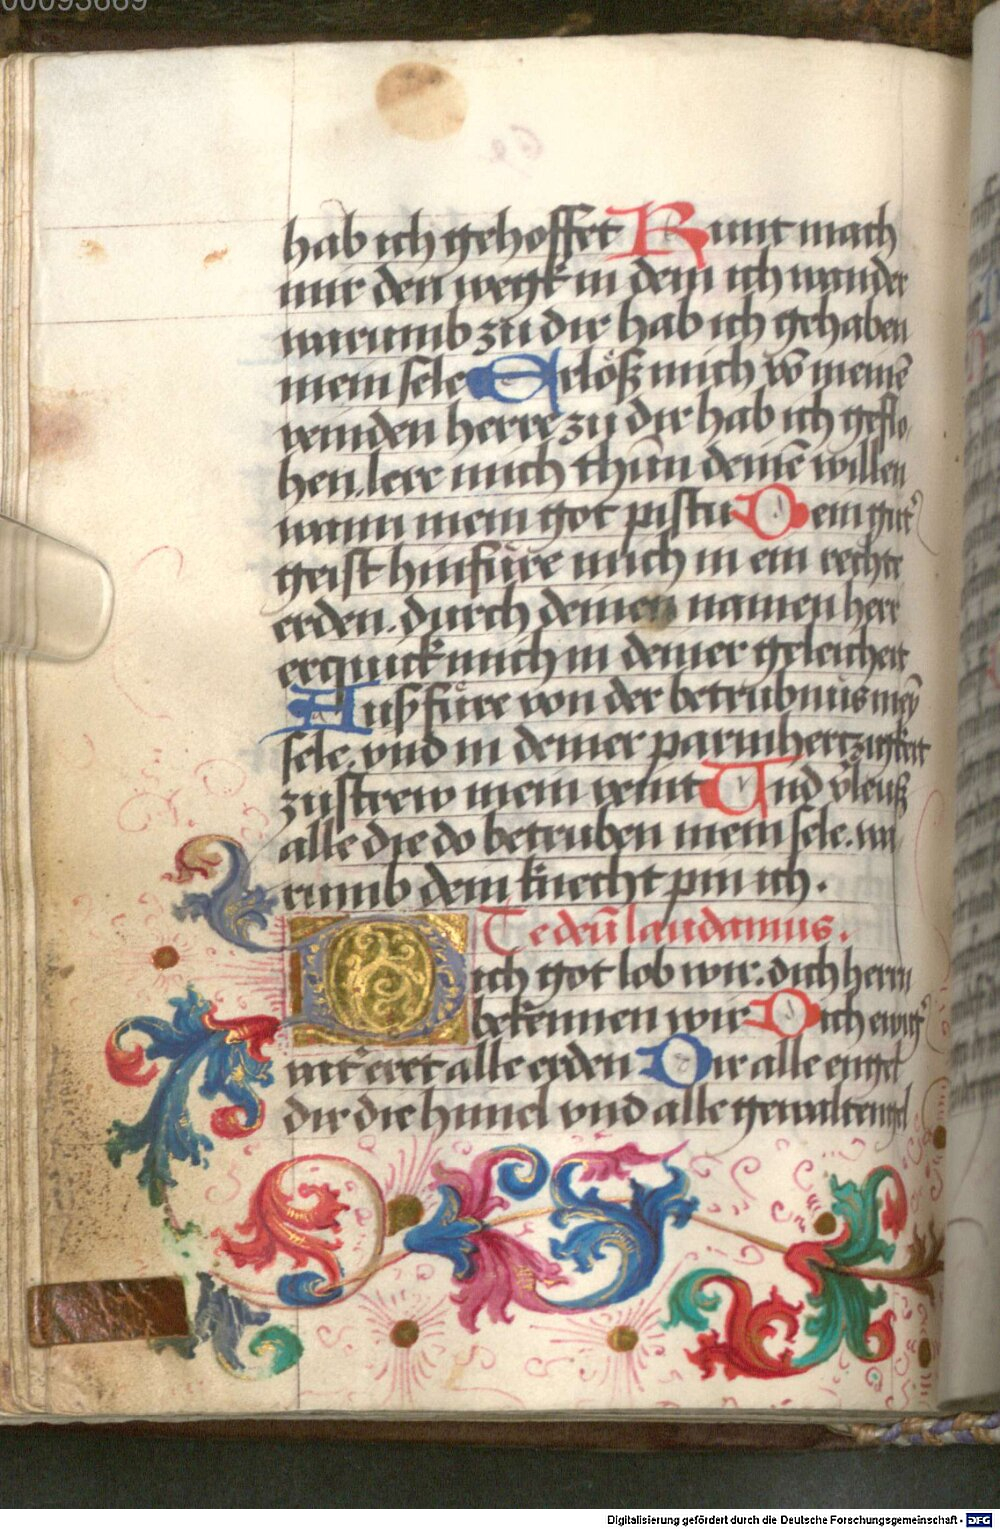 00093669
hab ich gehoffet Kunt mach
mir den wegk in dem ich wander
warumb zu dir hab ich gehaben
mein sele Erlöß mich vō meinē
veinden herre zu dir hab ich geflo
hen. lere mich thun deinē willen
wann mein got pistu Dein gut
geist hinfure mich in ein rechte
erden. durch deinen namen herr
erquick mich in deiner geleicheit
Außfüre von der betrubnus mey
sele. vnd in deiner parmhertzigkeit
zustrew mein veint Vnd vleuß
alle die do betruben mein sele. wa
rumb dein knecht pin ich.
Te deū laudamus.
Dich got lob wir. dich herrn
bekennen wir Dich ewig
vat eret alle erden Dir alle engel
dir die himel vnd alle gewaltengel
Digitalisierung gefördert durch die Deutsche Forschungsgemeinschaft - DFG